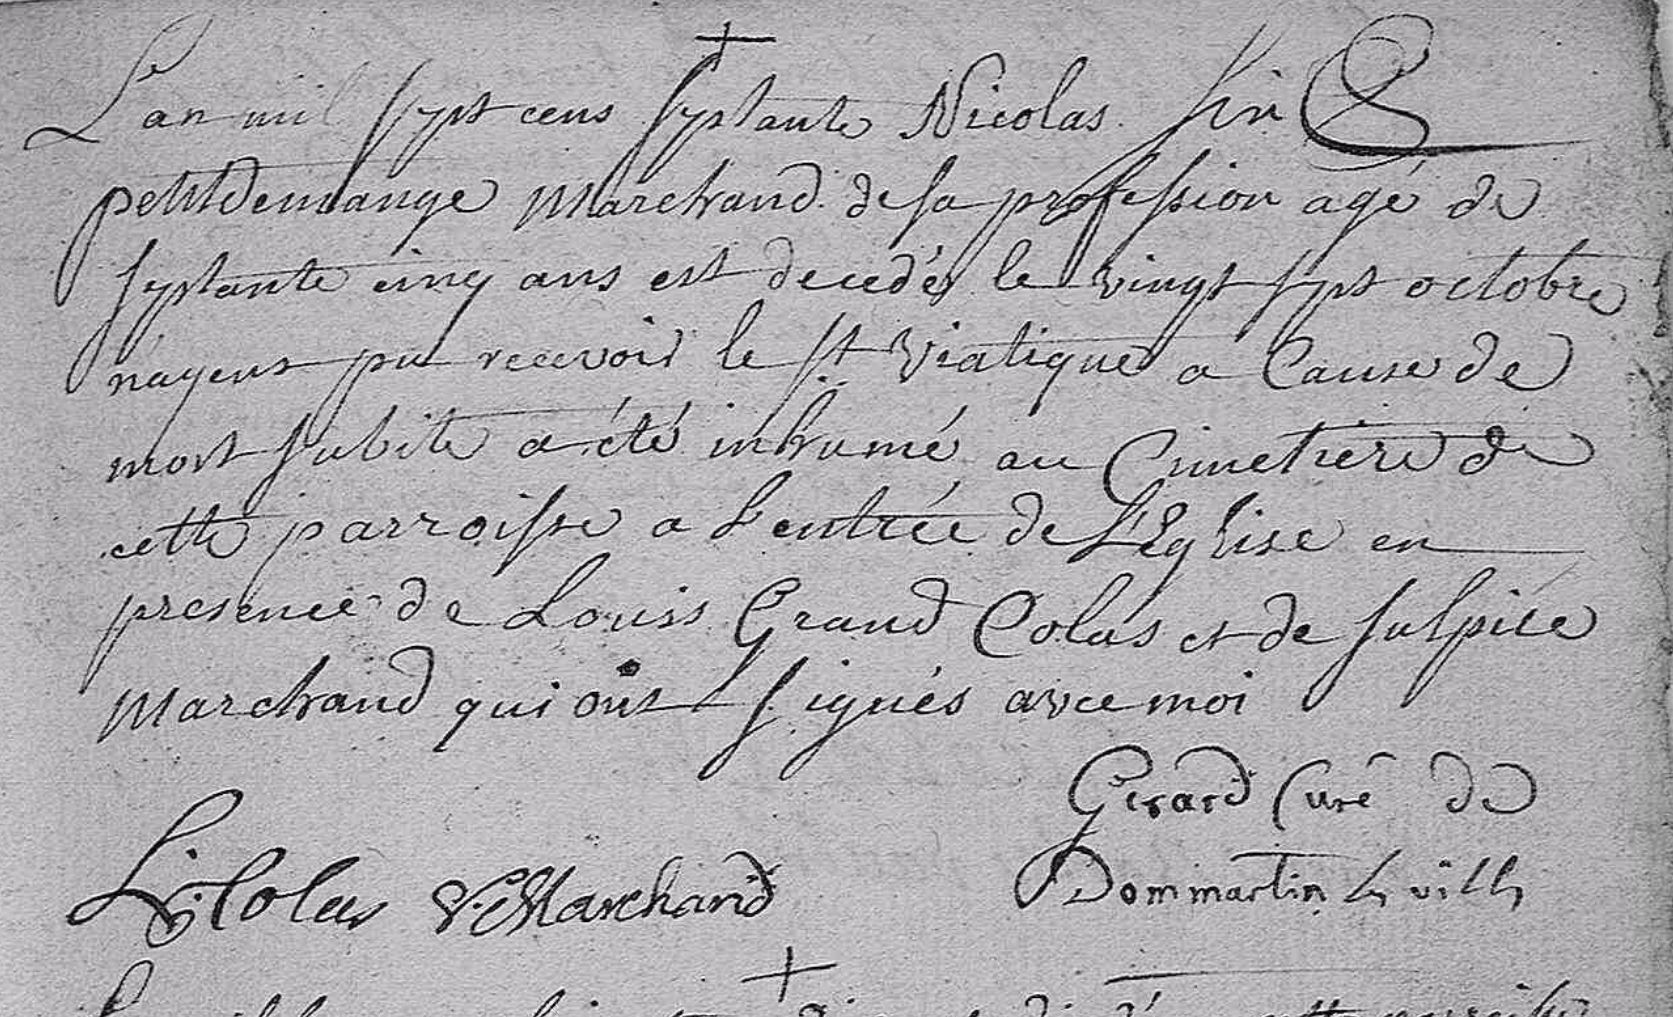 L'an mil sept cens septante Nicolas
petitdemange Marchand de sa profession agé de
septante cinq ans est decedé le vingt sept octobre
nayent pu recevoir le St Viatique a Cause de
mort subite a été inhumé au Cimetiere de
cette parroisse a L'entrée de L'Eglise en
presence de Louis Grand Colas et de sulpice
Marchand qui ont signés avec moi
Gerard Curé de
L G Colas S. Marchand Dommartin les ville